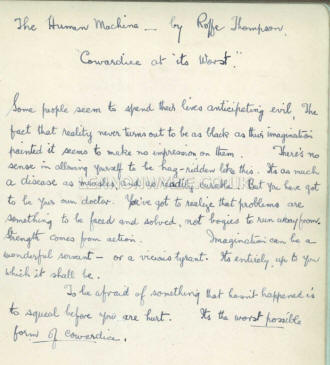 The Human Machine — by Roffe Thompson.
"Cowardice at its Worst."
Some people seem to spend their lives anticipating evil. The
fact that reality never turns out to be as black as their imagination
painted it seems to make no impression on them. There's no
sense in allowing yourself to be hag-ridden like this. Its as much
a disease as measles, and as readily curable. But you have got
to be your own doctor. You've got to realize that problems are
something to be faced and solved, not bogies to run away from.
Strength comes from action. Imagination can be a
wonderful servant – or a vicious tyrant. Its entirely up to you
which it shall be.
To be afraid of something that hasn't happened is
to squeal before you are hurt. Its the worst possible
form of cowardice.